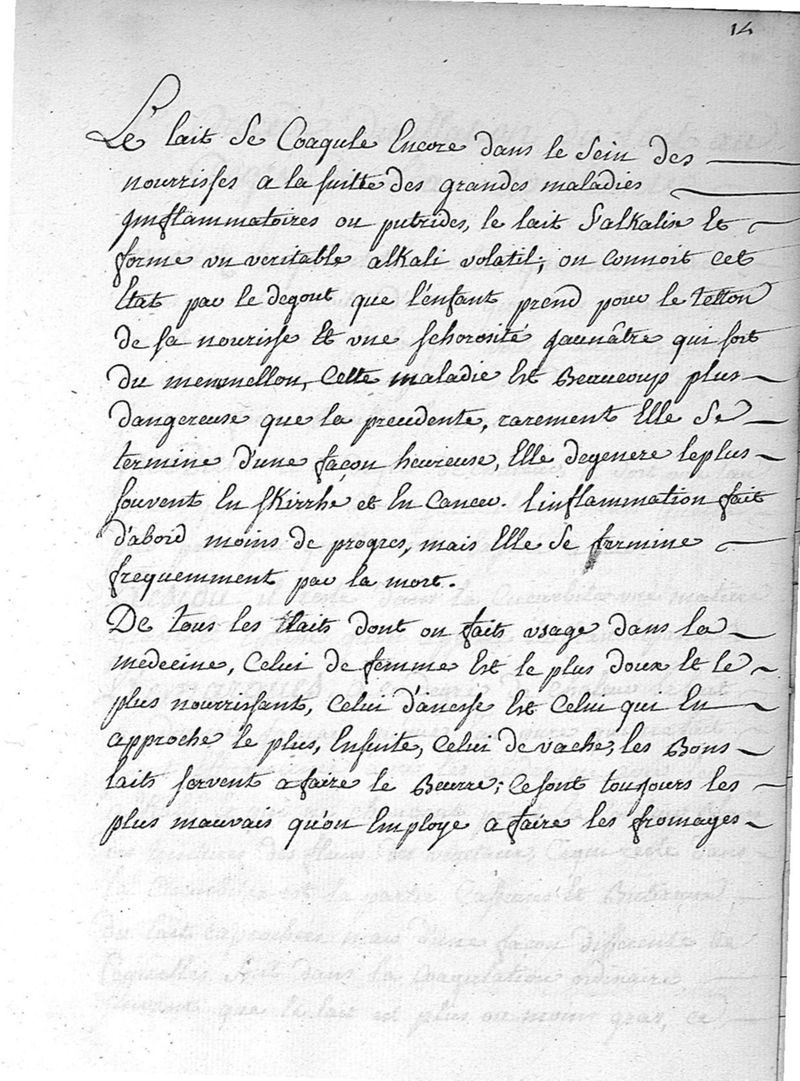 14
Le lait se Coagule Encore dans le Sein des
nourrisses a la suitte des grandes maladies
jnflammatoires ou putrides, le lait S'alkalise Et
forme un veritable alkali volatil; on connoit cet
Etat par le degout que l'enfant prend pour le tetton
de sa nourisse Et une sehorosité jaunâtre qui sort
du memmellon, Cette maladie Est Beaucoup plus
dangereuse que la precedente, rarement Elle Se
termine d'une façon heureuse, Elle degenere leplus
souvent En skirrhe et En Cancer. linflammation fait
d'abord moins de progres, mais Elle Se termine
frequemment par la mort.
De tous les laits dont on faits usage dans la
medecine, Celui de femme Est le plus doux Et le
plus nourrissant, Celui d'anesse Est Celui qui En
approche le plus, Ensuite, Celui de vache; les Bons
laits servent a faire le Beurre; Cesont toujours les
plus mauvais qu'on Employe a faire les fromages